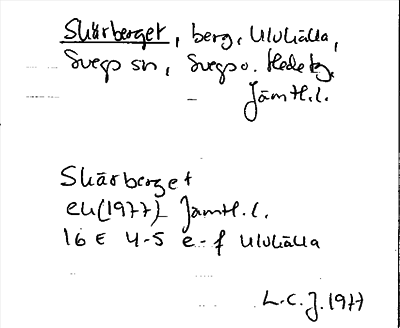 Skärberget, berg, Ulvkälla,
Svegs sn, Svegs o. Hede tg,
Jämtl.l.
Skärberget
ek(1977) Jämtl.l.
16 E 4-5 e-f Ulvkälla
L.C.J. 1977